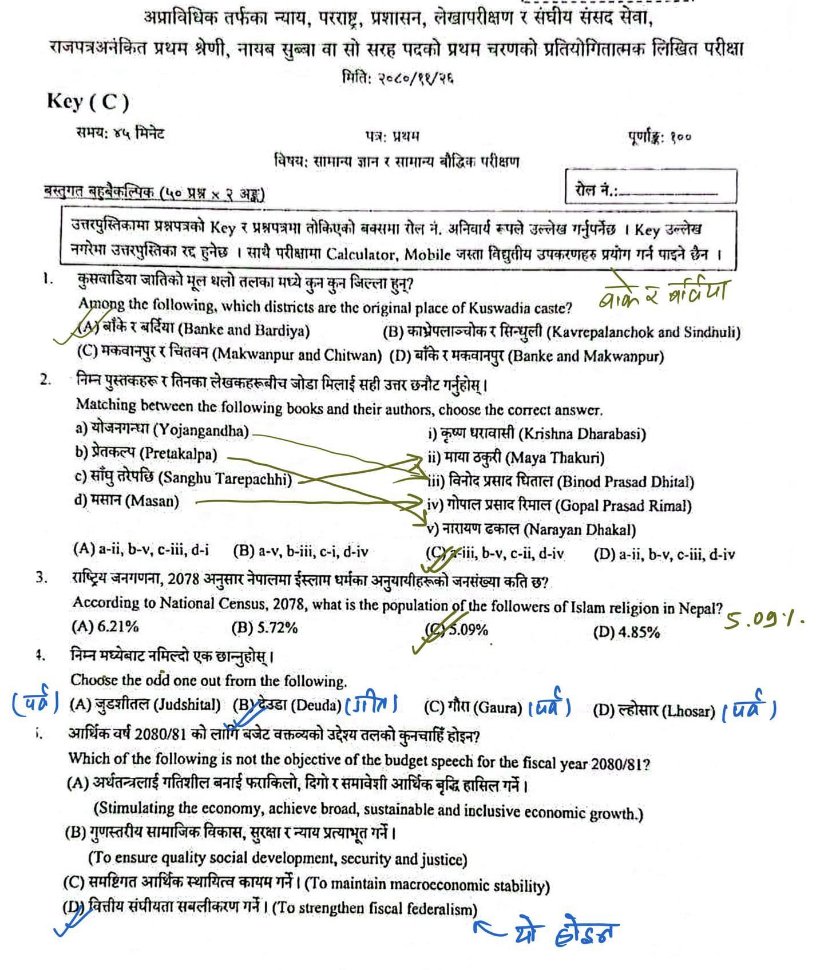 अप्राविधिक तर्फका न्याय, परराष्ट्र, प्रशासन, लेखापरीक्षण र संघीय संसद सेवा,
राजपत्रअनंकित प्रथम श्रेणी, नायब सुब्बा वा सो सरह पदको प्रथम चरणको प्रतियोगितात्मक लिखित परीक्षा
मिति: २०८०/११/२६
Key ( C )
समय: ४५ मिनेट पत्र: प्रथम पूर्णाङ्क: १००
विषय: सामान्य ज्ञान र सामान्य बौद्धिक परीक्षण
बस्तुगत बहुबैकल्पिक (५० प्रश्न × २ अङ्क) रोल नं.:
उत्तरपुस्तिकामा प्रश्नपत्रको Key र प्रश्नपत्रमा तोकिएको बक्समा रोल नं. अनिवार्य रूपले उल्लेख गर्नुपर्नेछ । Key उल्लेख
नगरेमा उत्तरपुस्तिका रद्द हुनेछ । साथै परीक्षामा Calculator, Mobile जस्ता विद्युतीय उपकरणहरु प्रयोग गर्न पाइने छैन ।
1. कुसवाडिया जातिको मूल थलो तलका मध्ये कुन कुन जिल्ला हुन्?
Among the following, which districts are the original place of Kuswadia caste? बाँके र बर्दिया
(A) बाँके र बर्दिया (Banke and Bardiya) (B) काभ्रेपलाञ्चोक र सिन्धुली (Kavrepalanchok and Sindhuli)
(C) मकवानपुर र चितवन (Makwanpur and Chitwan) (D) बाँके र मकवानपुर (Banke and Makwanpur)
2. निम्न पुस्तकहरू र तिनका लेखकहरूबीच जोडा मिलाई सही उत्तर छनौट गर्नुहोस् ।
Matching between the following books and their authors, choose the correct answer.
a) योजनगन्धा (Yojangandha) i) कृष्ण धरावासी (Krishna Dharabasi)
b) प्रेतकल्प (Pretakalpa) ii) माया ठकुरी (Maya Thakuri)
c) साँघु तरेपछि (Sanghu Tarepachhi) iii) विनोद प्रसाद धिताल (Binod Prasad Dhital)
d) मसान (Masan) iv) गोपाल प्रसाद रिमाल (Gopal Prasad Rimal)
v) नारायण ढकाल (Narayan Dhakal)
(A) a-ii, b-v, c-iii, d-i (B) a-v, b-iii, c-i, d-iv (C) a-iii, b-v, c-ii, d-iv (D) a-ii, b-v, c-iii, d-iv
3. राष्ट्रिय जनगणना, 2078 अनुसार नेपालमा ईस्लाम धर्मका अनुयायीहरूको जनसंख्या कति छ?
According to National Census, 2078, what is the population of the followers of Islam religion in Nepal? 5.09%.
(A) 6.21% (B) 5.72% (C) 5.09% (D) 4.85%
4. निम्न मध्येबाट नमिल्दो एक छान्नुहोस् ।
Choose the odd one out from the following.
(पर्व) (A) जुडशीतल (Judshital) (B) देउडा (Deuda) (गीत) (C) गौरा (Gaura) (पर्व) (D) ल्होसार (Lhosar) (पर्व)
आर्थिक वर्ष 2080/81 को लागि बजेट वक्तव्यको उद्देश्य तलको कुनचाहिँ होइन?
Which of the following is not the objective of the budget speech for the fiscal year 2080/81?
(A) अर्थतन्त्रलाई गतिशील बनाई फराकिलो, दिगो र समावेशी आर्थिक बृद्धि हासिल गर्ने ।
(Stimulating the economy, achieve broad, sustainable and inclusive economic growth.)
(B) गुणस्तरीय सामाजिक विकास, सुरक्षा र न्याय प्रत्याभूत गर्ने ।
(To ensure quality social development, security and justice)
(C) समष्टिगत आर्थिक स्थायित्व कायम गर्ने । (To maintain macroeconomic stability)
(D) वित्तीय संघीयता सबलीकरण गर्ने । (To strengthen fiscal federalism)
यो होइन